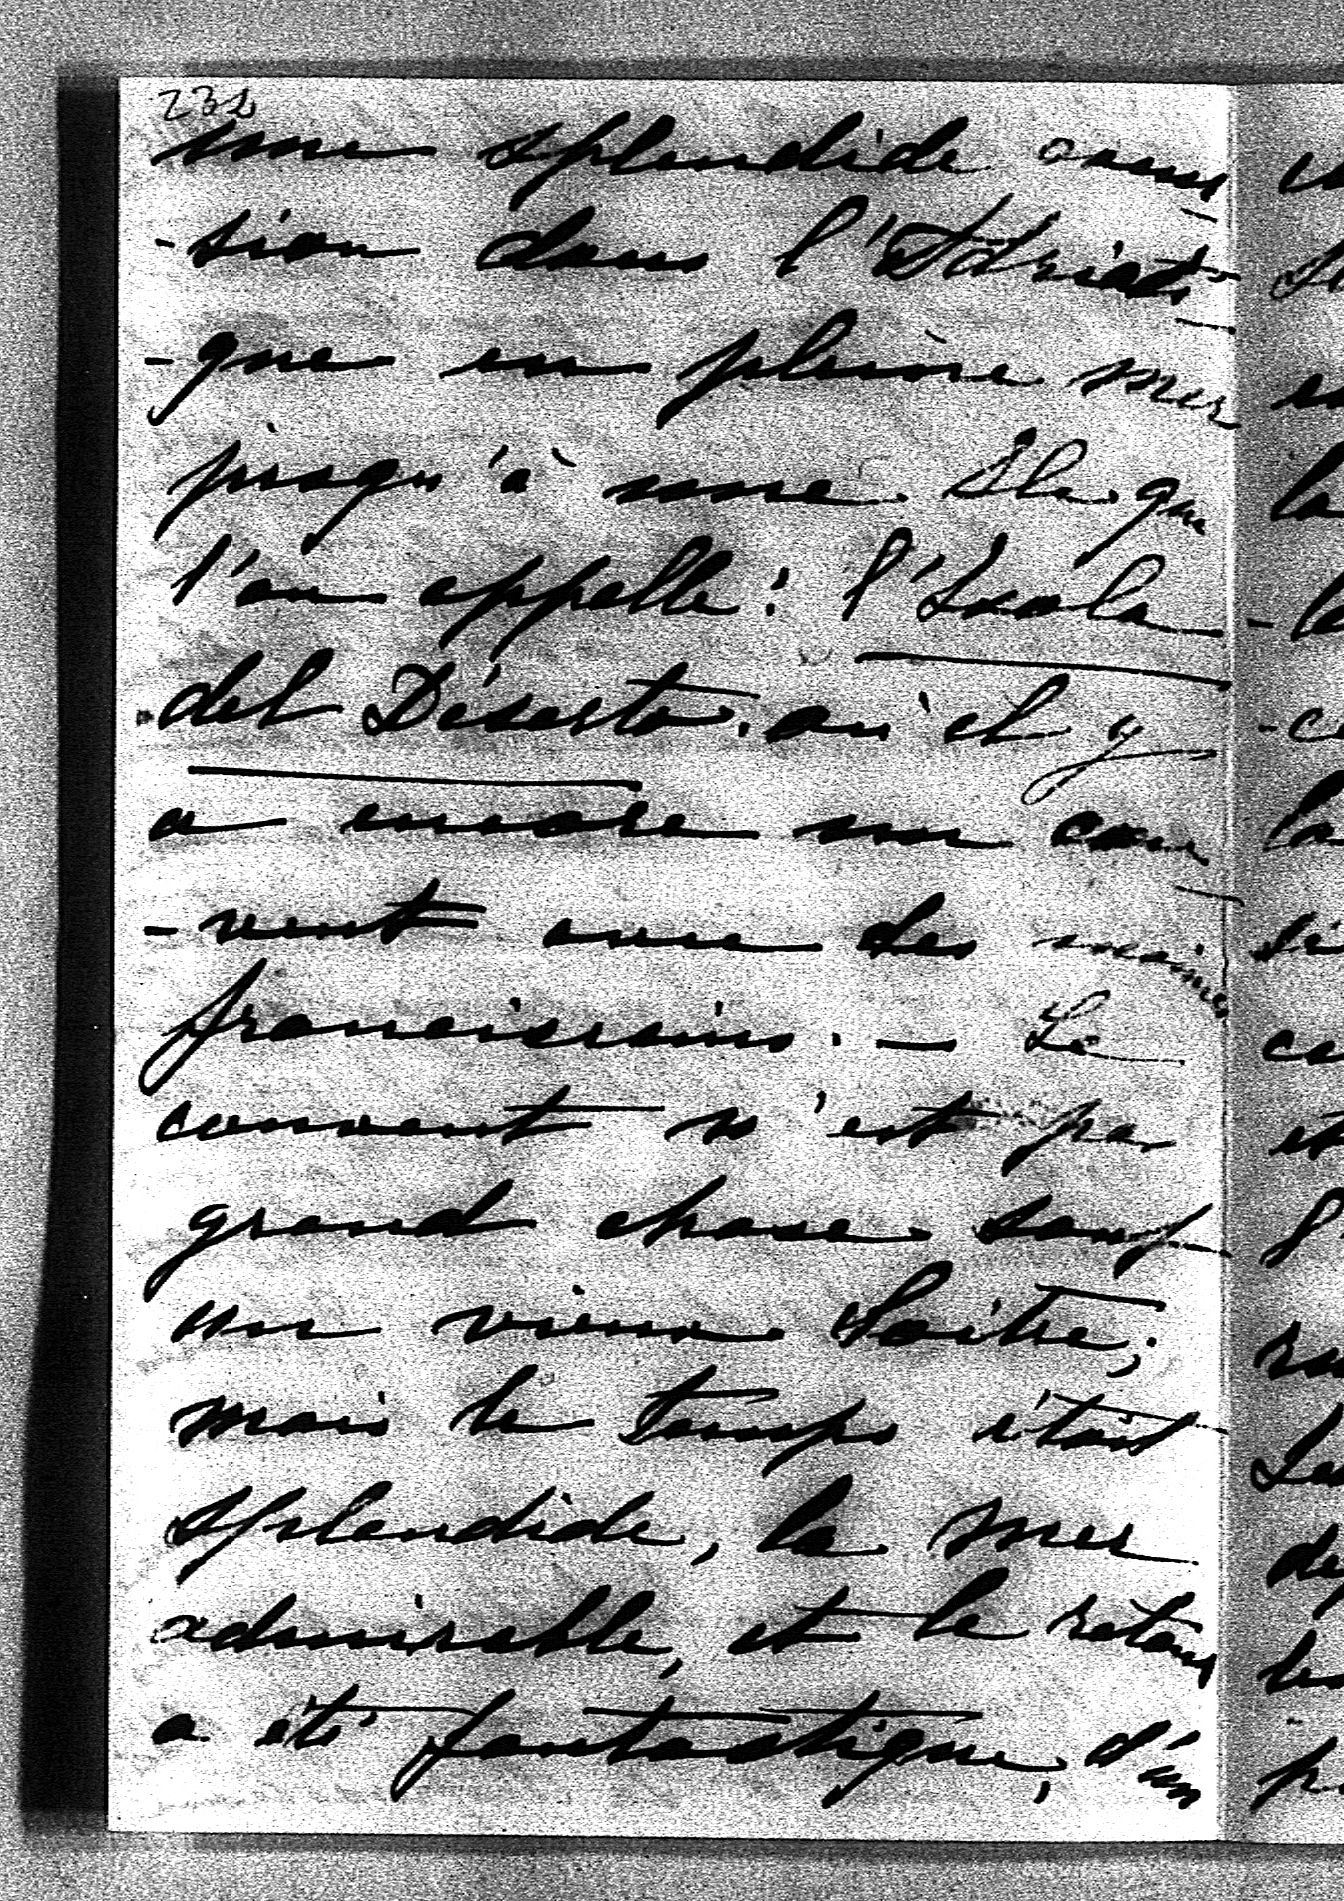 232
une splendide excur
-sion dans l'Adriati-
-que en pleine mer
jusqu'à une Ile que
l'on appelle: l'Isola
del Déserto. où il y
a encore un cou
-vent avec des moines
franciscains. — Le
couvent n'est pas
grand chose sauf
un vieux Loître;
mais le temps était
splendide, la mer
admirable, et le retour
a été fantastique, d'un